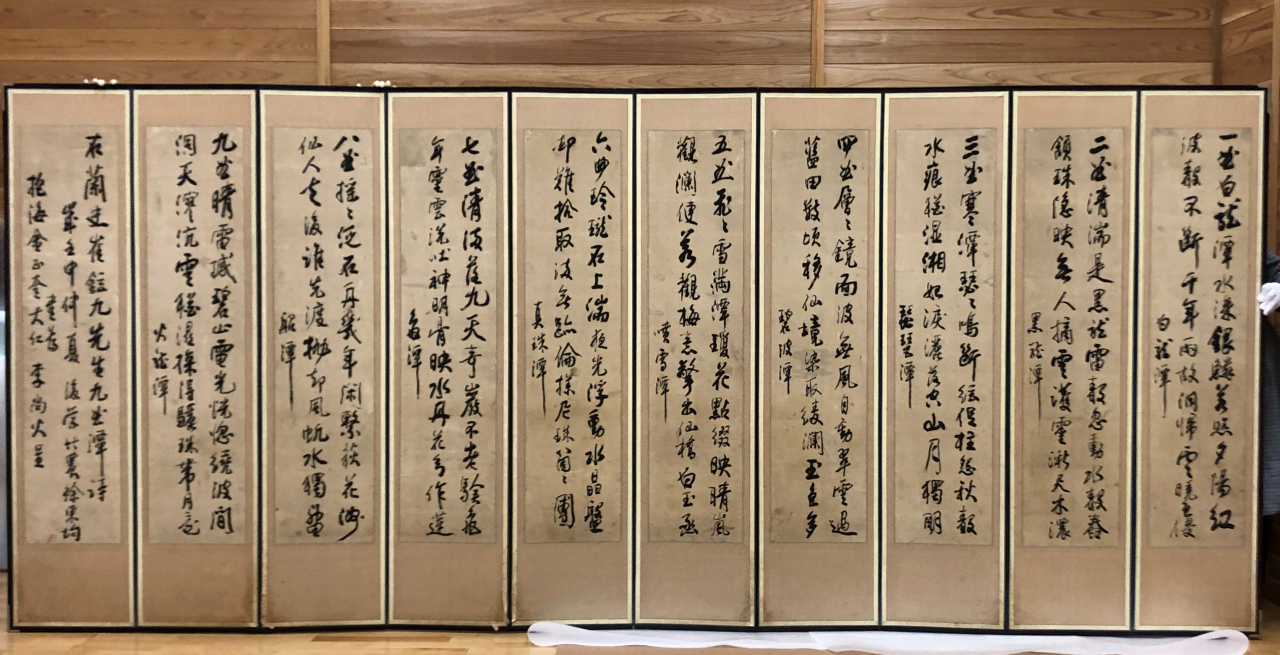 一曲白龍潭水深銀鱗若照夕陽紅
波聲不斷千年雨故洞歸雲曉
白龍潭
二曲清湍是黑龍雷聲忽動水聲舂
頷珠隱映無人摘雲護靈湫老木濃
黑龍潭
三曲寒潭瑟〻鳴斷絃促柱怨秋聲
水痕猶濕湘妃淚灑落空山月獨明
琵琶潭
四曲層〻鏡面波無風自動翠雲過
藍田數頃移仙境染取綾瀾玉色多
碧波潭
五曲飛〻雪滿潭瓊花點綴映晴嵐
觀瀾便若觀梅意擎出仙橋白玉函
噴雪潭
六曲玲瓏石上湍夜光浮動水晶盤
却難拾取波無跡倫探尼珠箇〻團
真珠潭
七曲清波落九天奇巖不老驗龜
年靈雲洗出神明骨映水丹花方作蓮
龜潭
八曲搖〻泛石舟幾年閑繫荻花洲
仙人去後誰先渡抛却風帆水獨留
船潭
九曲晴雷撼碧山電光恍惚繞波間
洞天深沉雲猶濕探得驪珠帶月還
火龍潭
右蘭史崔鉉九先生九曲潭詩
歲壬申仲夏 後学竹農徐東均
書爲
海金正奎大仁 李尚火呈